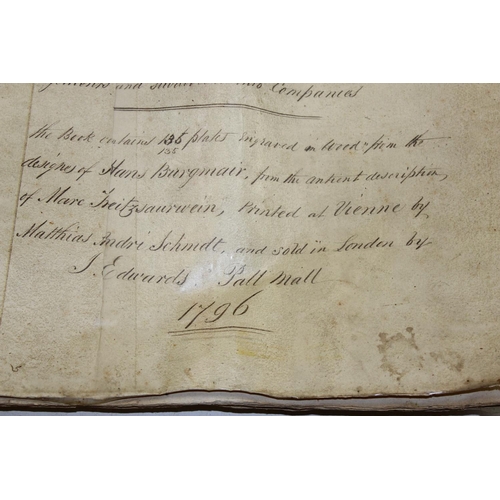 and Companies
The Book contains 135 plates engraved on Wood from the
135
designs of Hans Burgmair, from the antient description
of Marc Treitzsaurwein, Printed at Vienne by
Matthias André Schmidt, and sold in London by
J. Edwards Pall Mall
1796